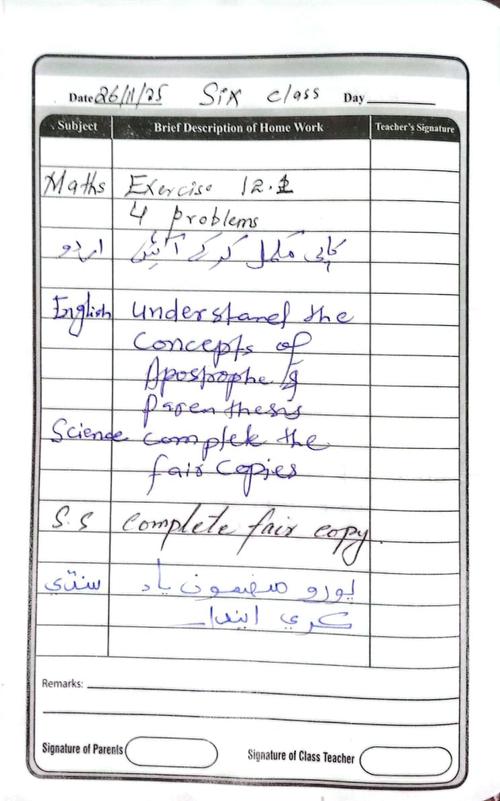 Date 26/11/25 Six class Day
Subject Brief Description of Home Work Teacher's Signature
Maths Exercise 12.1
4 problems
اردو کاپی مکمل کر کے آئیں
English understand the
concepts of
Apostrophe &
Parenthesis
Science complete the
fair copies
S.S complete fair copy.
سنڌي پورو مضمون ياد
ڪري ايندا
Remarks:
Signature of Parents Signature of Class Teacher